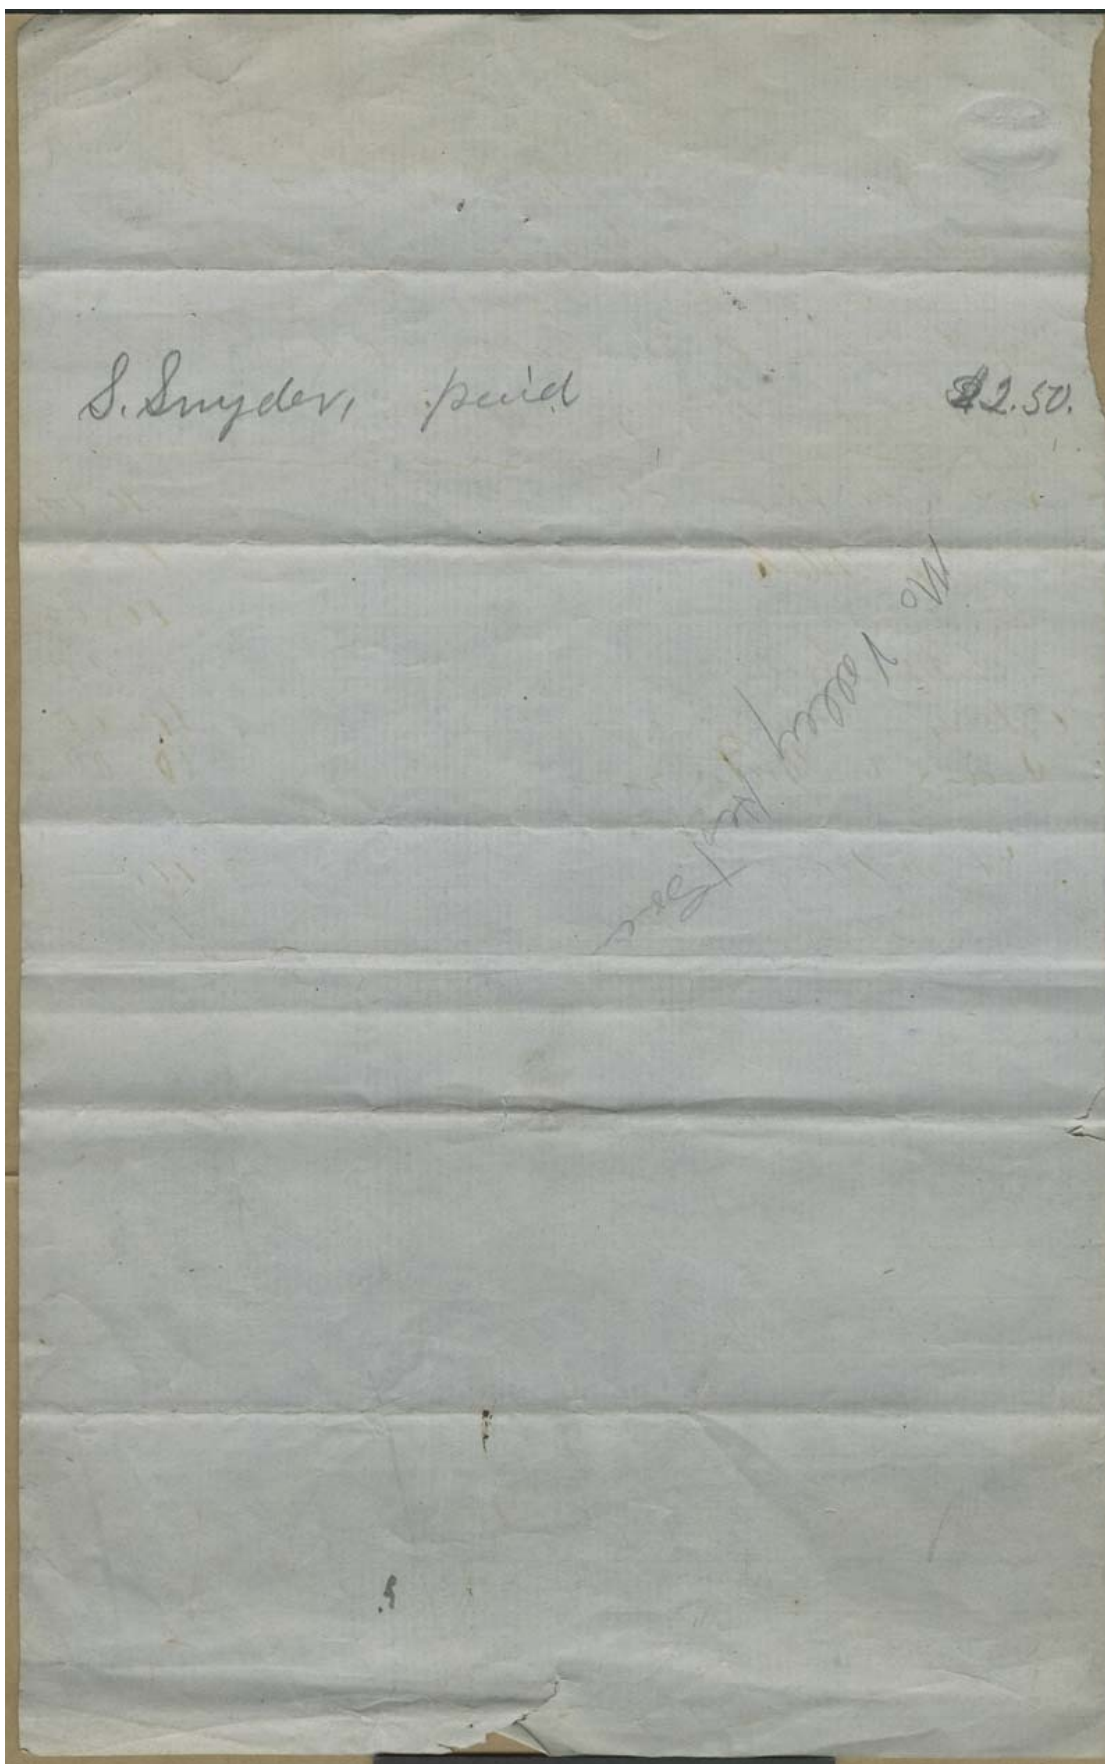 S. Snyder, paid $2.50.
Mo Valley